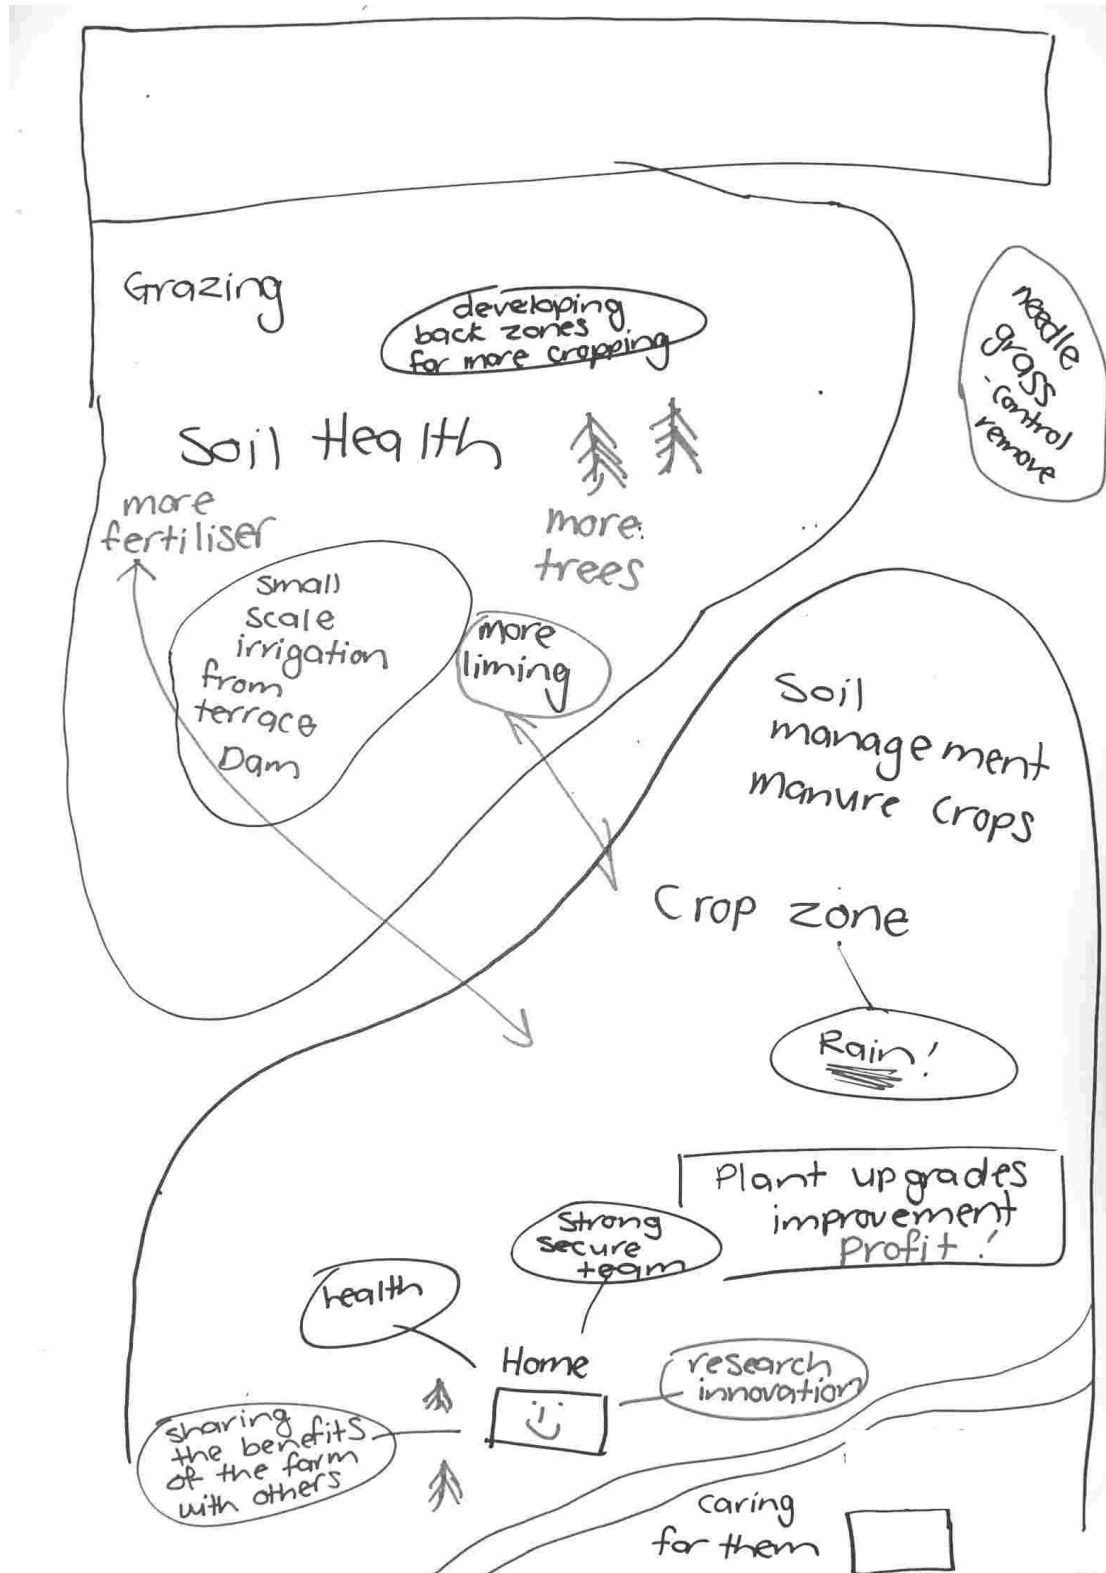 Grazing
developing
back zones
for more cropping
needle
grass
- control
remove
Soil Health
more
fertiliser
more
trees
small
scale
irrigation
from
terrace
Dam
more
liming
Soil
management
manure crops
Crop zone
Rain!
Plant upgrades
improvement
profit!
Strong
secure
team
health
Home
research
innovation
sharing
the benefits
of the farm
with others
caring
for them